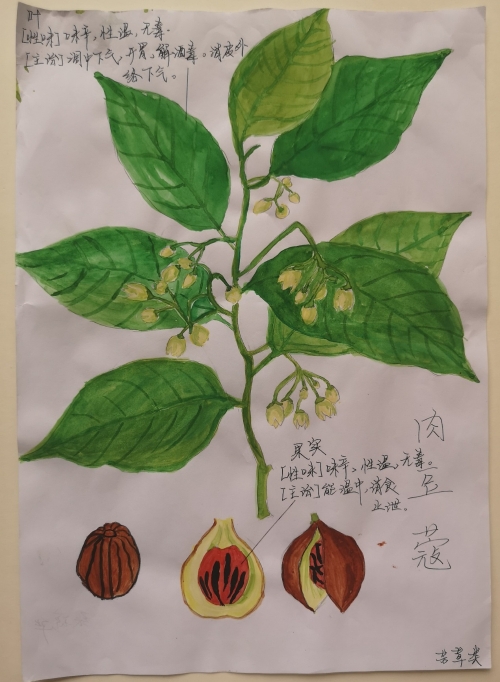 叶
[性味]味辛,性温,无毒.
[主治]调中下气,开胃,解酒毒。消皮外
络下气。
果实
[性味]味辛,性温,无毒。
[主治]能温中,消食
止泄。
肉豆蔻
芳草类